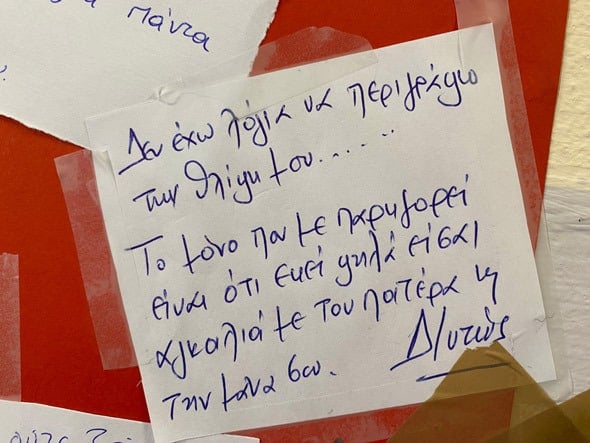 πάντα
Δεν έχω λόγια να περιγράψω
την θλίψη μου......
Το μόνο που με παρηγορεί
είναι ότι εκεί ψηλά είσαι
αγκαλιά με τον πατέρα κ
την μάνα σου.